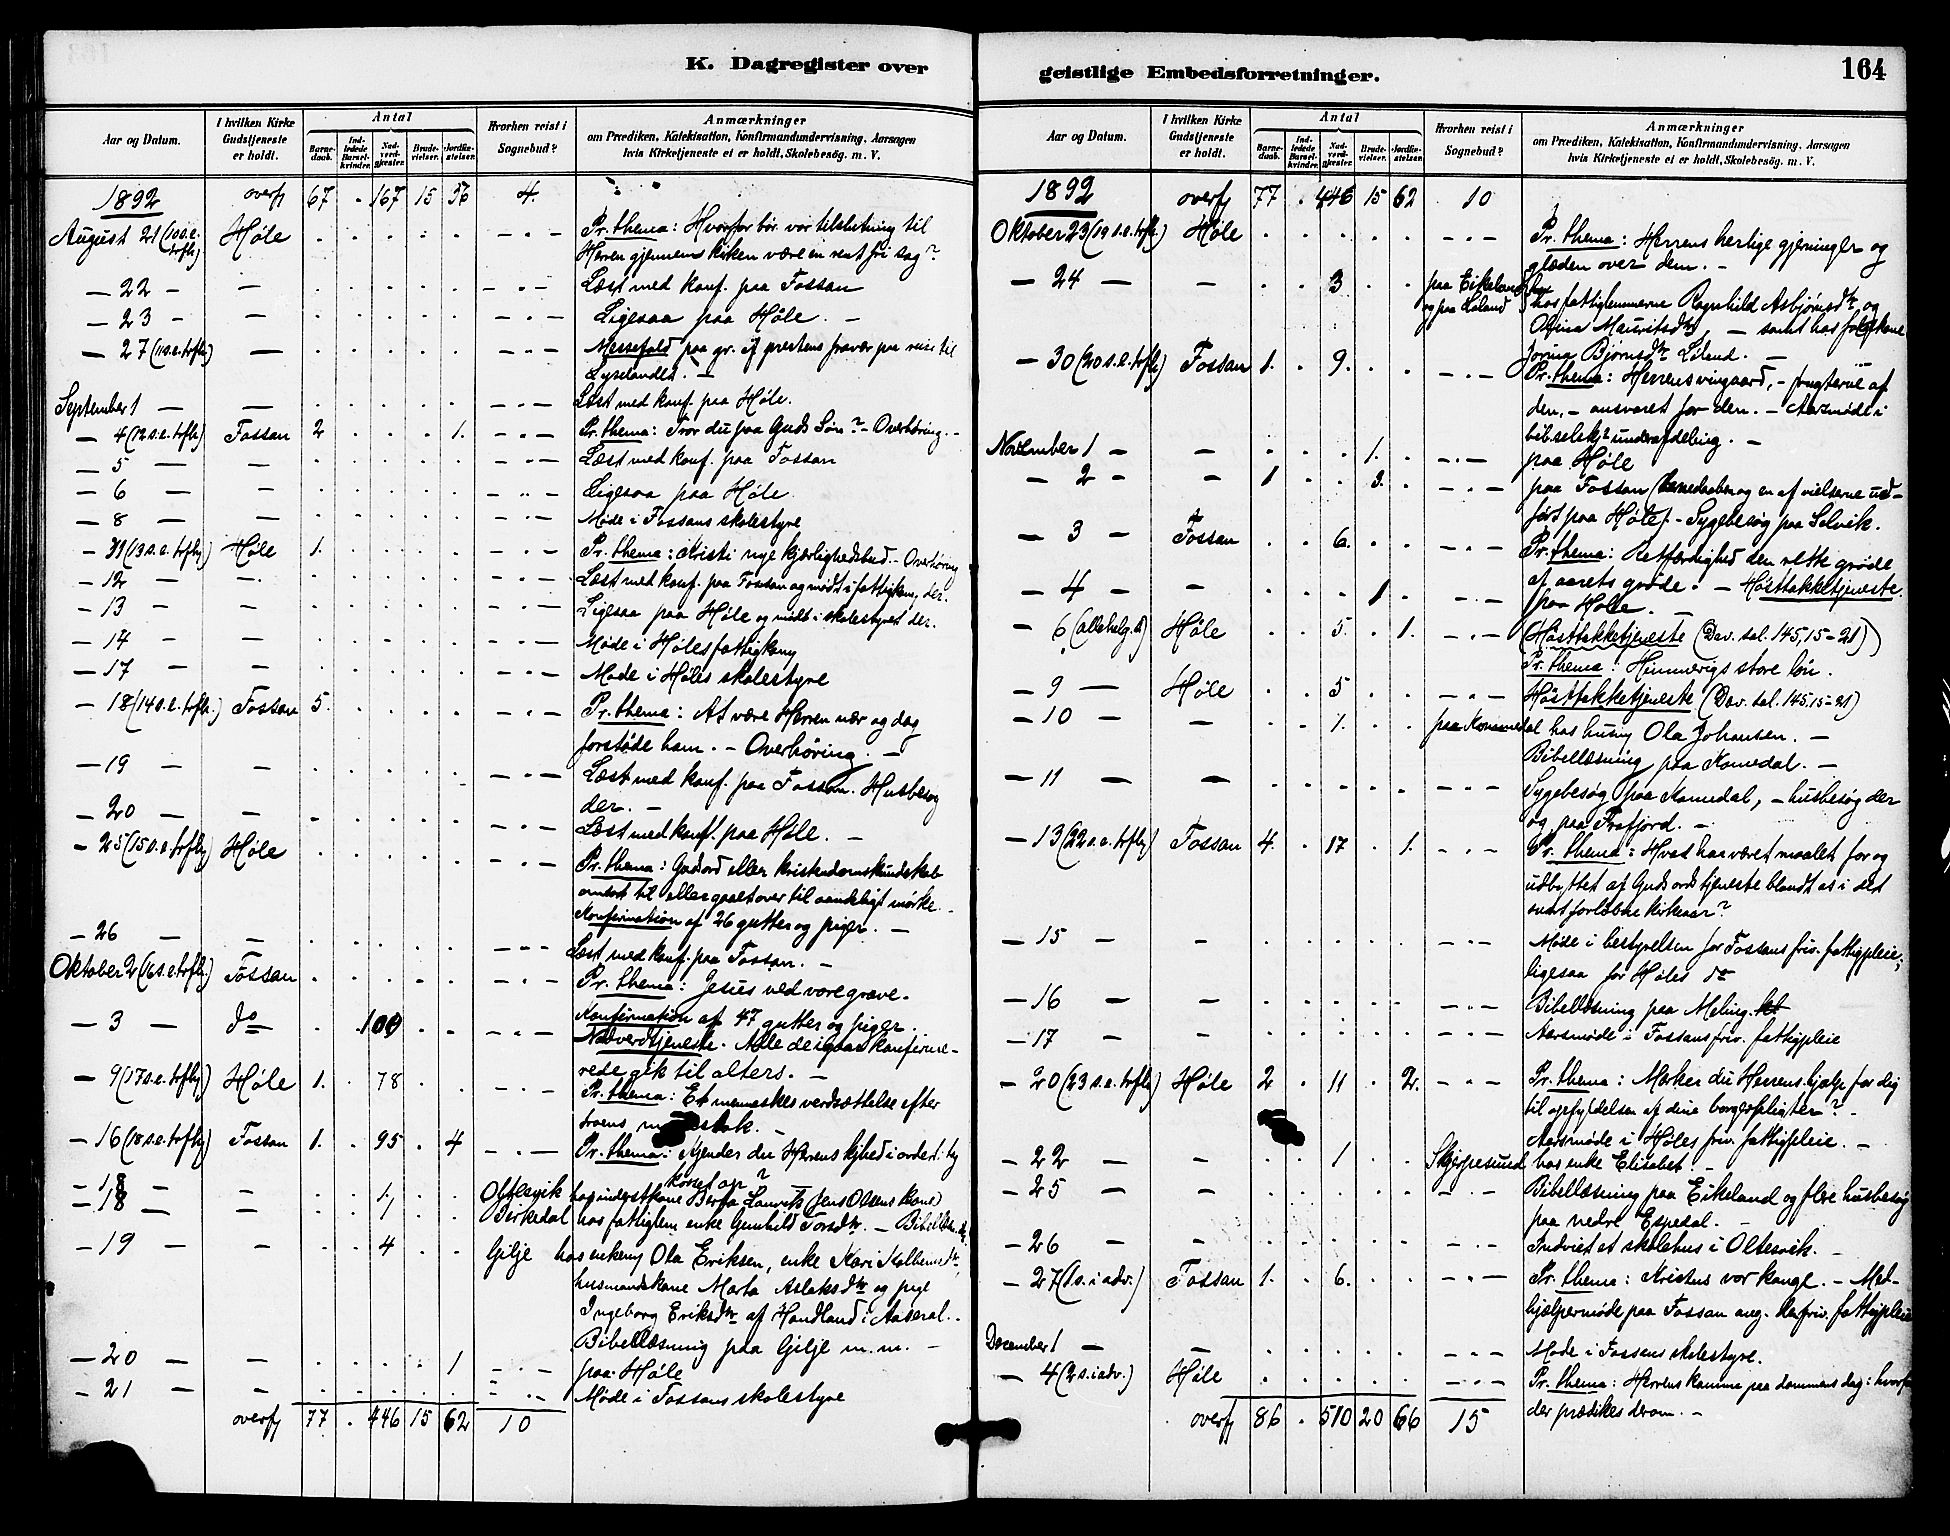 K. Dagregister over
Aar og Datum. I hvilken Kirke Gudstjeneste er holdt. Antal Barnedaab. Indledede Barselkvinder. Nadverdgjester. Brudevielser. Jordfæstelser. Hvorhen reist i Sognebud? Anmærkninger
om Prædiken, Katekisation, Konfirmandundervisning, Aarsagen
hvis Kirketjeneste ei er holdt, Skolebesøg. m. V.
1892 overf 67 . 167 15 56 4.
August 21 (10 s.e. trflg) Høle Pr. thema: Hvorfor bør vor tilslutning til
Herren gjennem kirken være en rent fri sag?
— 22 — — Læst med konf. paa Fossan
— 23 — — Ligesaa paa Høle. —
— 27 (11 s.e. trflg) — Messefald paa gr. af prestens fravær paa reise til
Lyselandet. —
September 1 — — Læst med konf. paa Høle.
— 4 (12 s.e. trflg) Fossan 2 1. Pr. thema: Tror du paa Guds Søn? — Overhøring. —
— 5 — — Læst med konf. paa Fossan
— 6 — — Ligesaa paa Høle.
— 8 — — Møde i Fossans skolestyre
— 11 (13 s.e. trflg) Høle 1. Pr. thema: Kristi nye kjærlighedsbud. — Overhøring
— 12 — — Læst med konf. paa Fossan og mødt i fattigkom. der.
— 13 — — Ligesaa paa Høle og mødt i skolestyret der.
— 14 — — Møde i Høles fattigkom
— 17 — — Møde i Høles skolestyre
— 18 (14 s.e. trflg.) Fossan 5. Pr. thema: At være Herren nær og dog
forstøde ham. — Overhøring. —
— 19 — — Læst med konf. paa Fossan. Husbesøg
der. —
— 20 — — Læst med konf. paa Høle. —
— 25 (15 s.e. trflg) Høle Pr. thema: Guds ord eller kristendomskundskab
omsat til eller gaaet over til aandeligt mørke. —
Konfirmation af 26 gutter og piger. —
— 26 — — Læst med konf. paa Fossan. —
Oktober 2 (16 s.e. trflg.) Fossan Pr. thema: Jesus ved vore grave.
Konfirmation af 47 gutter og piger.
— 3 — do 100 Nadverdtjeneste. Alle de igaar konfirme-
rede gik til alters. —
— 9 (17 s.e. trflg) Høle 1. 78 Pr. thema: Et menneskes verdsættelse efter
troens
— 16 (18 s.e. trflg) Fossan 1. 95 4 Pr. thema: Kjender du Herrens
op?
— 18 — — 1. Oltesvik hos inderstkone Berta Jens Olsens kone
— 18 — — 1 Birkedal hos fattiglem enke Gunhild Torsdtr. —
— 19 — — 4 Gilje hos enkem Ola Eriksen, enke Kari
husmandskone Marta Aslaksdtr og pige
Ingeborg Eriksdtr af Handland i Aaseral. —
Bibellæsning paa Gilje m. m. —
— 20 — — 1 paa Høle
— 21 — — Møde i Fossans skolestyre
overf 77 . 446 15 62 10
geistlige Embedsforretninger. 164
Aar og Datum. I hvilken Kirke Gudstjeneste er holdt. Antal Barnedaab. Indledede Barselkvinder. Nadverdgjester. Brudevielser. Jordfæstelser. Hvorhen reist i Sognebud? Anmærkninger
om Prædiken, Katekisation, Konfirmandundervisning, Aarsagen
hvis Kirketjeneste ei er holdt, Skolebesøg. m. V.
1892 overf 77 . 446 15 62 10
Oktober 23 (19 s.e. trfl.) Høle Pr. thema: Herrens herlige gjerninger og
glæden over dem. —
— 24 — — 3 paa Eikeland og paa Liland hos fattiglemmerne Ragnhild Asbjørnsdtr og
Olfina Mauritsdtr, — samt hos
Jorina Bjørnsdtr Liland. —
— 30 (20 s.e. trflg) Fossan 1. 9. Pr. thema: Herrens vingaard, — frugterne af
den, — ansvaret for den. — Aarsmøde i
bibselsks underafdeling. —
November 1 — — 1. paa Høle
— 2 — — 1 3. paa Fossan (barnedaaben og en af vielserne ud-
ført paa Høle). — Sygebesøg paa Selvik.
— 3 — Fossan 6. Pr. thema: Retfærdighed den rette grøde
af aarets grøde. — Høsttakketjeneste.
— 4 — — 1 paa Høle. —
— 6 (allehelg.d) Høle 5. 1. (Høsttakketjeneste (Dav. sal. 145, 15-21))
Pr. thema: Himmerigs store løn.
— 9 — Høle 5 Høsttakketjeneste (Dav. sal. 145, 15-21)
— 10 — — 1. paa Kommedal hos husm Ola Johansen. —
Bibellæsning paa Komedal. —
— 11 — — Sygebesøg paa Komedal, — husbesøg der
og paa Frafjord. —
— 13 (22 s.e. trflg) Fossan 4. 17 1. Pr. thema: Hvad har været maalet for og
udbyttet af Guds ords tjeneste blandt os i det
snart forløbne kirkeaar?
— 15 — — Møde i bestyrelsen for Fossans friv. fattigpleie;
ligesaa for Høles do
— 16 — — Bibellæsning paa Meling.
— 17 — — Aarsmøde i Fossans friv. fattigpleie
— 20 (23 s.e. trflg) Høle 2 11 2. Pr. thema: Mærker du Herrens hjælp for dig
til opfyldelsen af dine borgerpligter? —
Aarsmøde i Høles friv. fattigpleie. —
— 22 — — 1 Skjørpesund hos enke Elisabet —
— 25 — — Bibellæsning paa Eikeland og flere husbesøg
paa nedre Espedal. —
— 26 — — Indviet et skolehus i Oltesvik. —
— 27 (1 s. i adv.) Fossan 1. 6. Pr. thema: Kristus vor konge. — Med-
hjælpermøde paa Fossan ang. den friv. fattigpleie
December 1 — — Møde i Fossans skolestyre.
— 4 (2 s. i adv.) Høle Pr. thema: Herrens komme paa dommens dag: hvorfor
der prædikes derom. —
overf 86 . 510 20 66 15